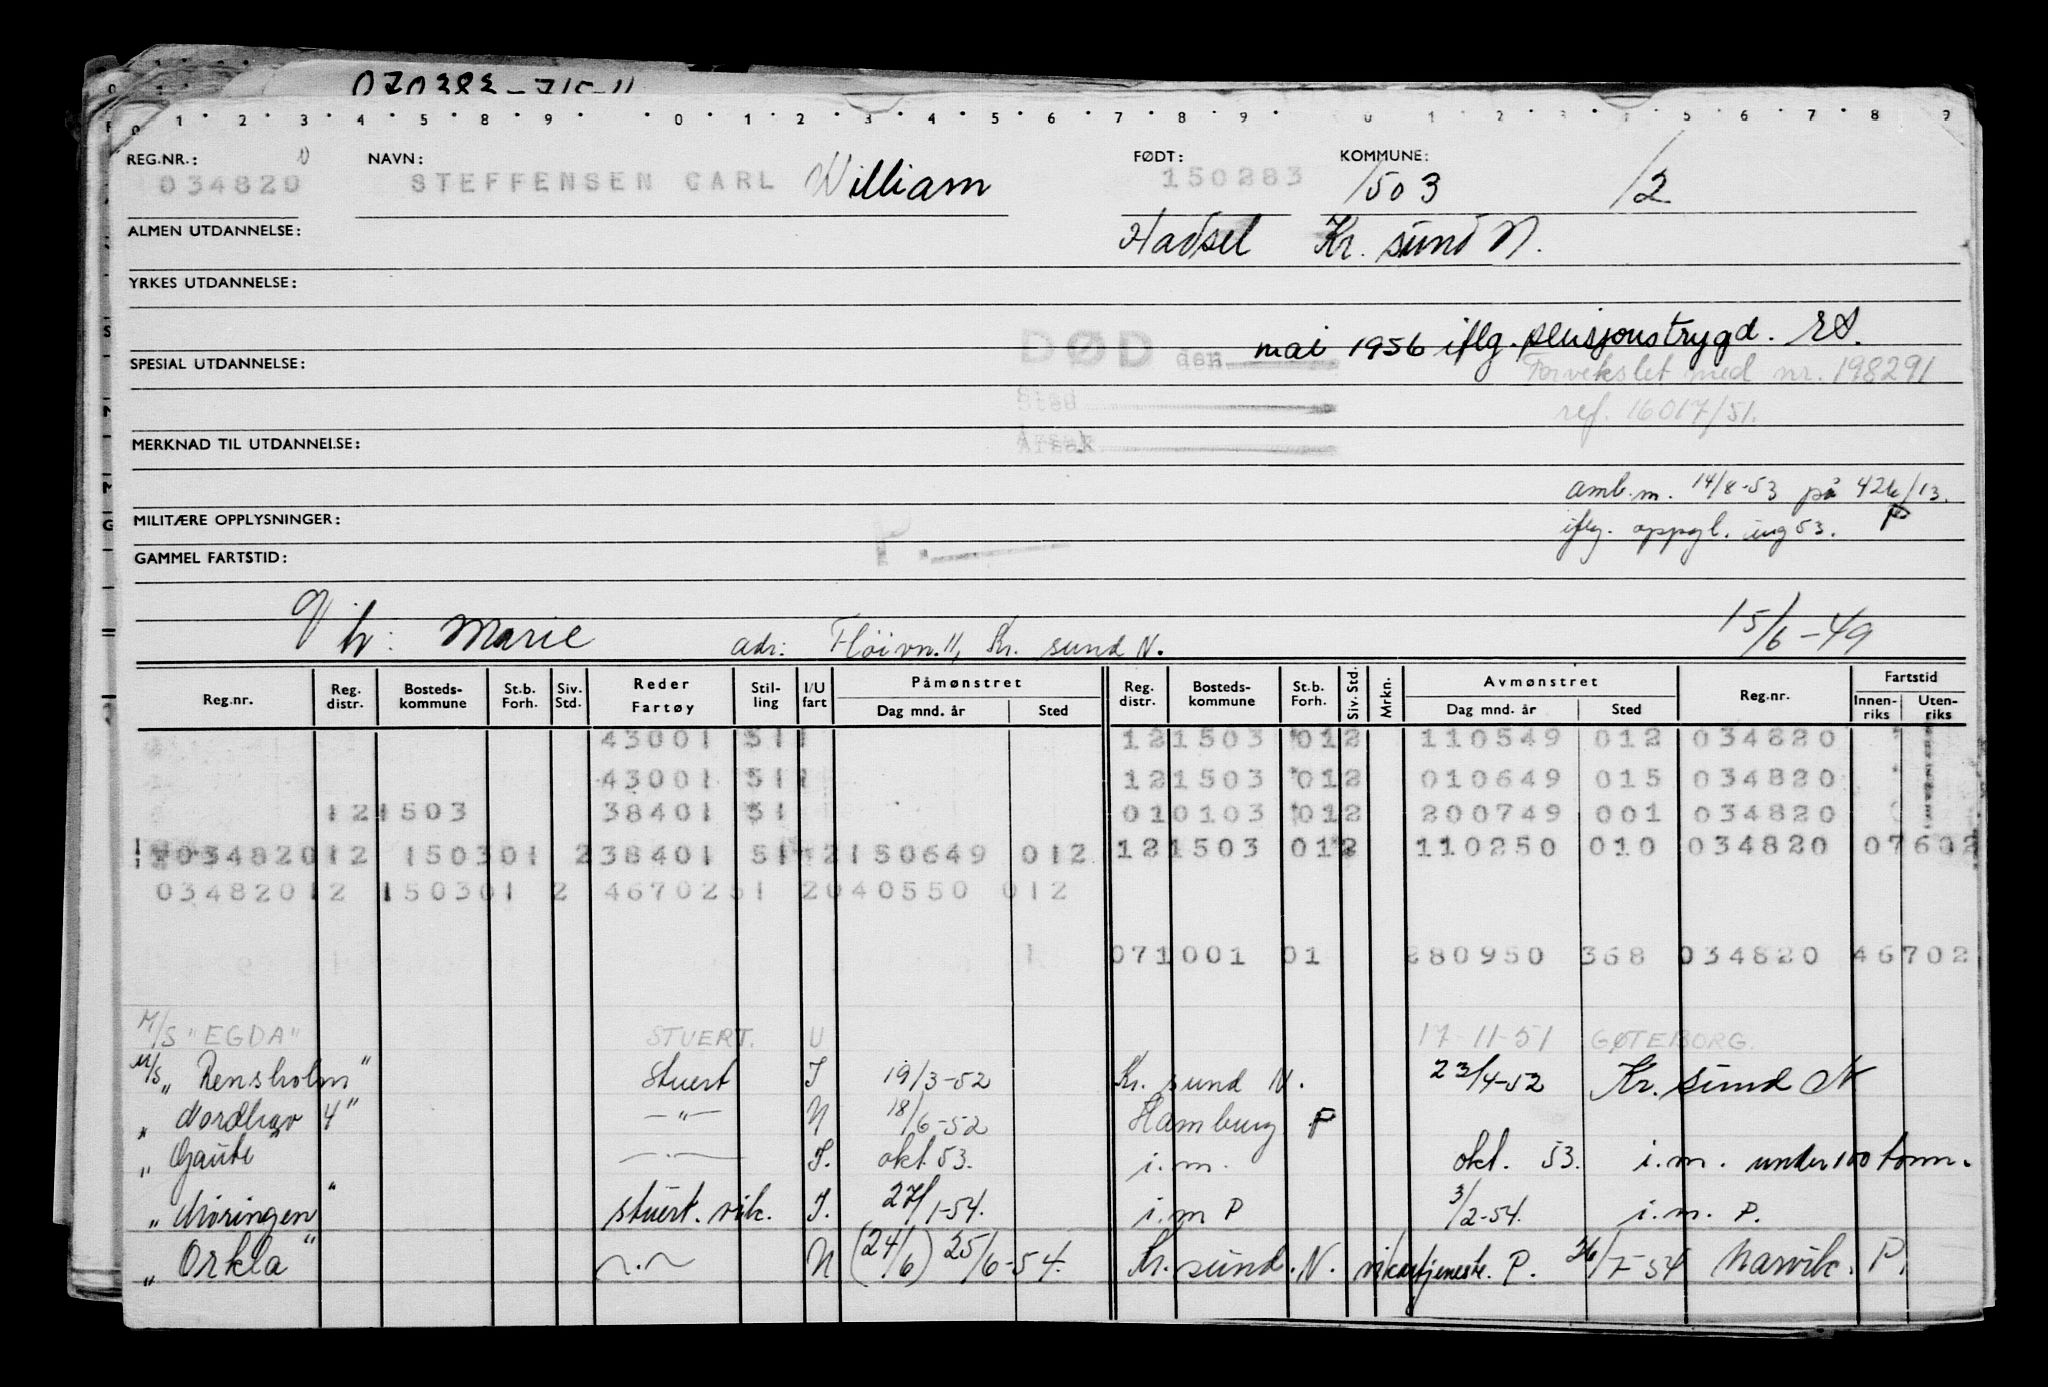 070383-715-11
0 1 2 3 4 5 8 9 0 1 2 3 4 5 6 7 8 9 0 1 2 3 4 5 6 7 8 9
REG.NR.: NAVN: FØDT: KOMMUNE:
034820 STEFFENSEN CARL William 150283 1503 12
ALMEN UTDANNELSE: Hadsel Kr. sund N.
YRKES UTDANNELSE:
DØD den mai 1956 iflg. pensjonstrygd. RS.
SPESIAL UTDANNELSE: Forvekslet med nr. 198291
Sted ref. 16017/51.
MERKNAD TIL UTDANNELSE: Årsak
amb.m. 14/8-53 på 426/13.
MILITÆRE OPPLYSNINGER: P. iflg. oppgl. ung 53. P
GAMMEL FARTSTID:
h: Marie adr: Fløivn. 11, Kr. sund N. 15/6-49
Reg.nr. Reg. distr. Bosteds-kommune St.b. Forh. Siv. Std. Reder Fartøy Stil-ling I/U fart Påmønstret Dag mnd. år Sted Reg. distr. Bosteds-kommune St.b. Forh. Siv. Std. Mrkn. Avmønstret Dag mnd. år Sted Reg.nr. Fartstid Innen-riks Uten-riks
43001 511 121503 012 110549 012 034820
43001 511 121503 012 010649 015 034820
121503 38401 51 010103 012 200749 001 034820
03482012 150301 238401 51 12150649 012 121503 012 110250 010 034820 07602
03482012 150301 2 4670251 2040550 012
071001 01 280950 368 034820 46702
M/S "EGDA" STUERT. U 17-11-51 GØTEBORG.
M/S " Rensholm" Stuert I 19/3-52 Kr. sund N. 23/4-52 Kr. sund N
" Nordhav 4" —"— N 18/6-52 Hamburg P
" Gaute" —"— I. okt. 53. i.m. okt. 53. i.m. under 100 tonn.
" Møringen" stuert. vik. I. 27/1-54. i.m P 3/2-54. i.m. P.
" Orkla" —"— N (24/6) 25/6-54. Kr. sund. N. vikartjeneste. P. 26/7-54 Narvik. P.